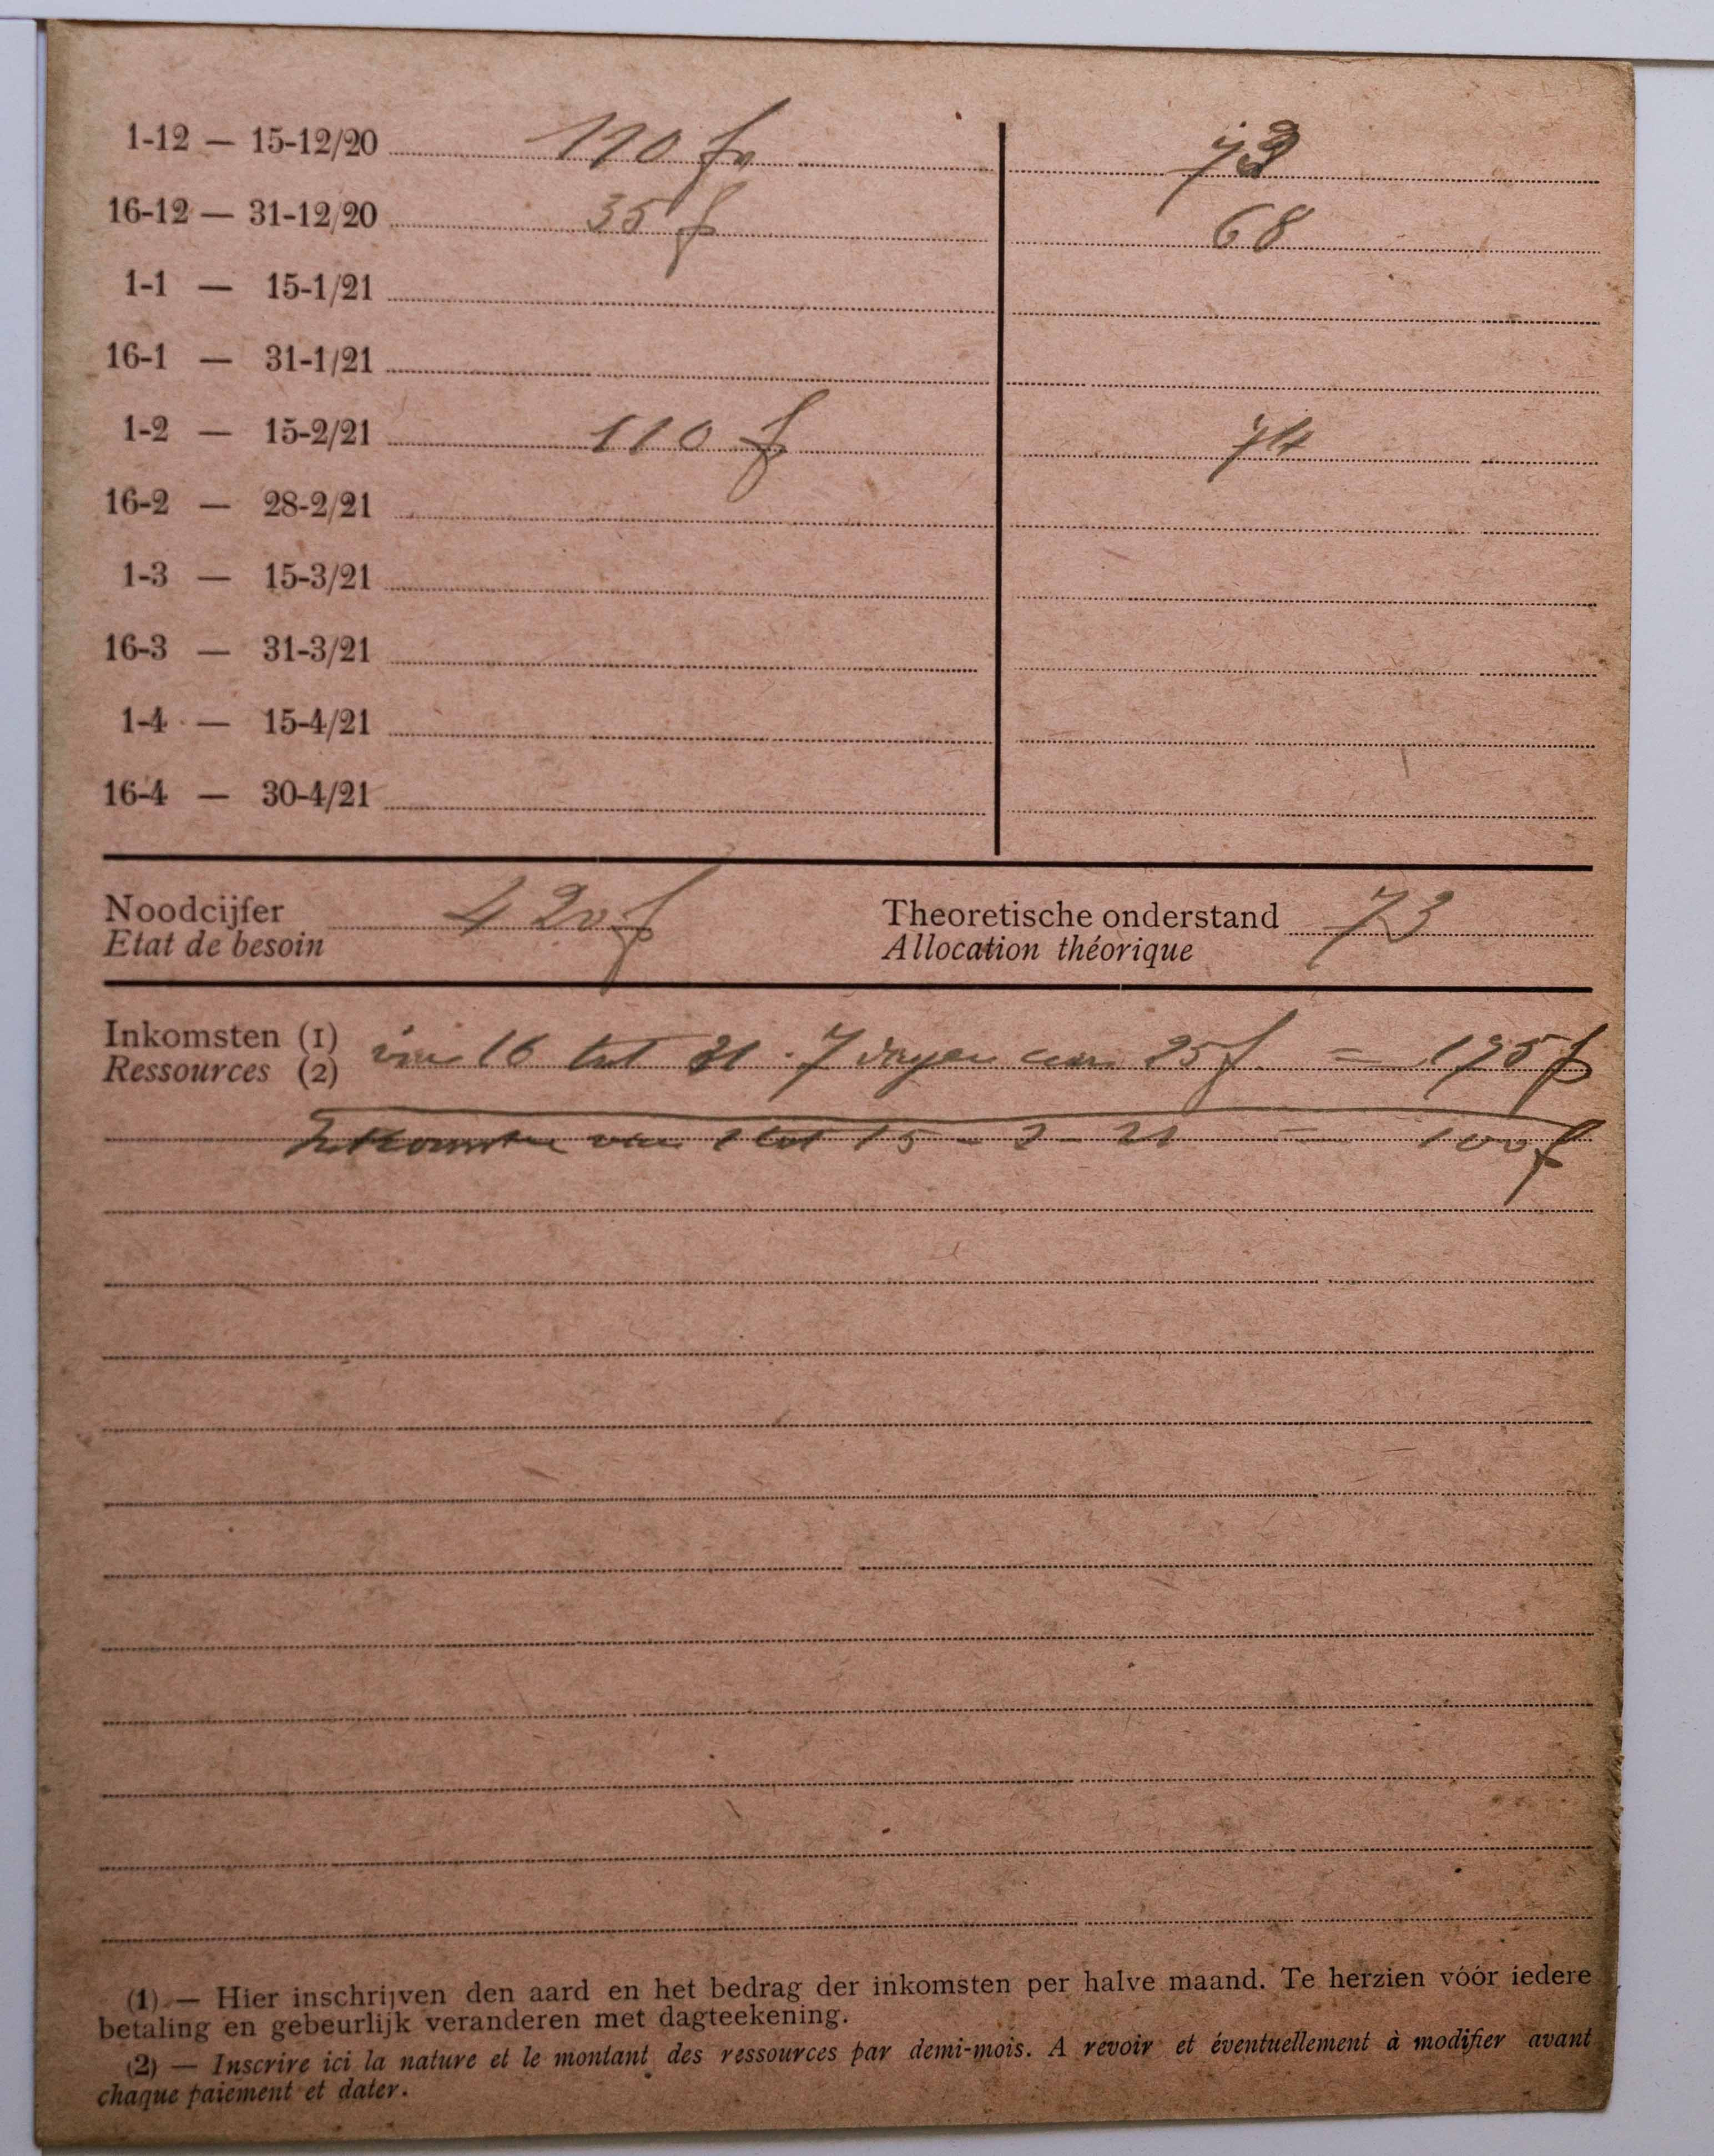 1-12 — 15-12/20 110 fr 73
16-12 — 31-12/20 35 f 68
1-1 — 15-1/21
16-1 — 31-1/21
1-2 — 15-2/21 110 f 74
16-2 — 28-2/21
1-3 — 15-3/21
16-3 — 31-3/21
1-4 — 15-4/21
16-4 — 30-4/21
Noodcijfer 420 f Theoretische onderstand 73
Etat de besoin Allocation théorique
Inkomsten (1) van 16 tot 31 . 7 dagen aan 25 f. = 175 f
Ressources (2)
Inkomsten van 1 tot 15 - 2 - 21 = 100 f
(1) — Hier inschrijven den aard en het bedrag der inkomsten per halve maand. Te herzien vóór iedere
betaling en gebeurlijk veranderen met dagteekening.
(2) — Inscrire ici la nature et le montant des ressources par demi-mois. A revoir et éventuellement à modifier avant
chaque paiement et dater.